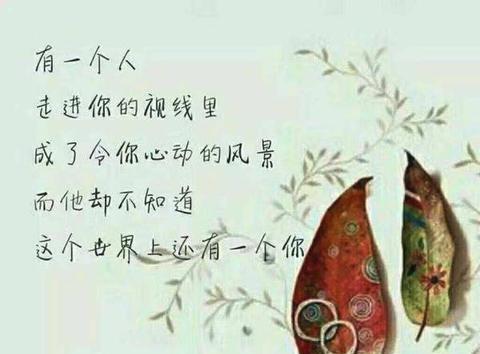 有一个人
走进你的视线里
成了令你心动的风景
而他却不知道
这个世界上还有一个你